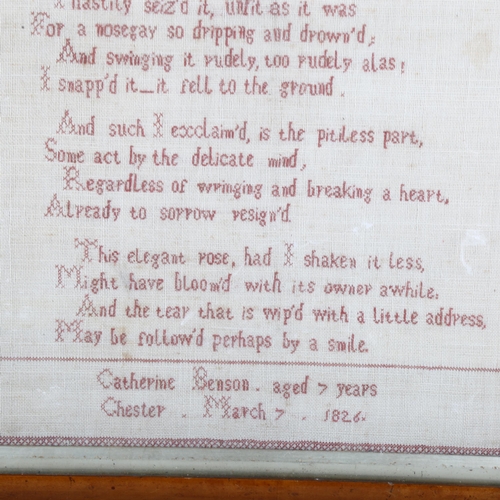 I hastily seiz'd it, unfit as it was
For a nosegay so dripping and drown'd;
And swinging it rudely, too rudely alas!
I snapp'd it_it fell to the ground.
And such I exclaim'd, is the pitiless part,
Some act by the delicate mind,
Regardless of wringing and breaking a heart,
Already to sorrow resign'd.
This elegant rose, had I shaken it less,
Might have bloom'd with its owner awhile:
And the tear that is wip'd with a little address,
May be follow'd perhaps by a smile.
Catherine Benson. aged 7 years
Chester. March 7. 1826.